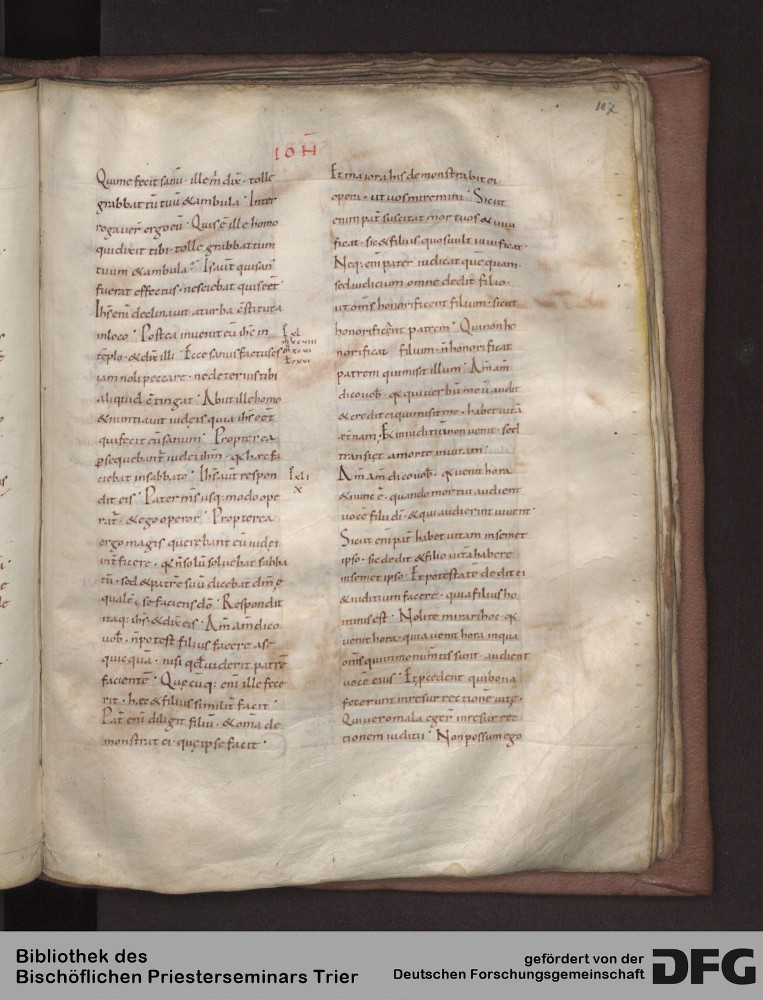 107
IOH̄
Qui me fecit sanū· ille m̄ dix̄· tolle
grabbatū tuū & ambula· Inter
rogauer̄ ergo eū· Quis ē ille homo
qui dixit tibi· tolle grabbattum
tuum & ambula· Is aut̄ qui san̄
fuerat effectus· nesciebat quis eēt
Ihs̄ em̄ declinauit a turba c̄stituta
in loco· Postea inuenit eū ihs̄ in
tēplo· & dix̄ illi· Ecce sanus factus es
iam noli peccare· ne deterius tibi
aliquid c̄tingat· Abiit ille homo
& nuntiauit iudeis quia ihs̄ eēt
qui fecit eū sanum· Propterea
ꝑsequebant̄ iudei ihm̄· q̄ hæc fa
ciebat in sabbato· Ihs̄ aut̄ respon
dit eis· Pater ms̄ usq; modo ope
rat̄· & ego operor· Propterea
ergo magis querebant eū iudei
int̄ficere· q̄ n̄ solū soluebat sabba
tū· sed & patrē suū dicebat dm̄ ę
qualē se faciens dō· Respondit
itaq; ihs̄ & dix̄ eis· Am̄ am̄ dico
uob̄· n̄ potest filius facere a sē
quicquā· nisi qd̄ uiderit patrē
facientē· Quęcūq; em̄ ille fece
rit· hæc & filius similit̄ facit·
Pat̄ em̄ diligit filiū· & om̄a de
monstrat ei· quę ipse facit·
xl
xli
x
Et maiora his demonstrabit ei
opera· ut uos miremini· Sicut
enim pat̄ suscitat mortuos & uiui
ficat· sic & filius quos uult uiuificat·
Neq; em̄ pater iudicat quēquam·
sed iudicium omne dedit filio·
ut om̄s honorificent filium· sicut
honorificent patrem· Qui non ho
norificat filium· n̄ honorificat
patrem qui misit illum· Am̄ am̄
dico uob̄· q̄ qui uerbū meū audit
& credit ei qui misit me· habet uitā
æt̄nam· Et in iuditiū non uenit· sed
transiet a morte in uitam·
Am̄ am̄ dico uob̄· q̄ uenit hora
& nunc ē· quando mortui audient
uocē filii dī· & qui audierint uiuent·
Sicut em̄ pat̄ habet uitam in semet
ipso· sic dedit & filio uitā habere
in semet ipso· Et potestatē dedit ei
& iuditium facere· quia filius ho
minis est· Nolite mirari hoc· q̄
uenit hora· quia uenit hora in qua
om̄s qui in monumtis sunt· audient
uocē eius· Et ꝓcedent qui bona
fecerunt in resurrectionē uitę·
Qui uero mala eger̄ in resurrec
tionem iuditii· Non possum ego
Bibliothek des
Bischöflichen Priesterseminars Trier
gefördert von der
Deutschen Forschungsgemeinschaft
DFG